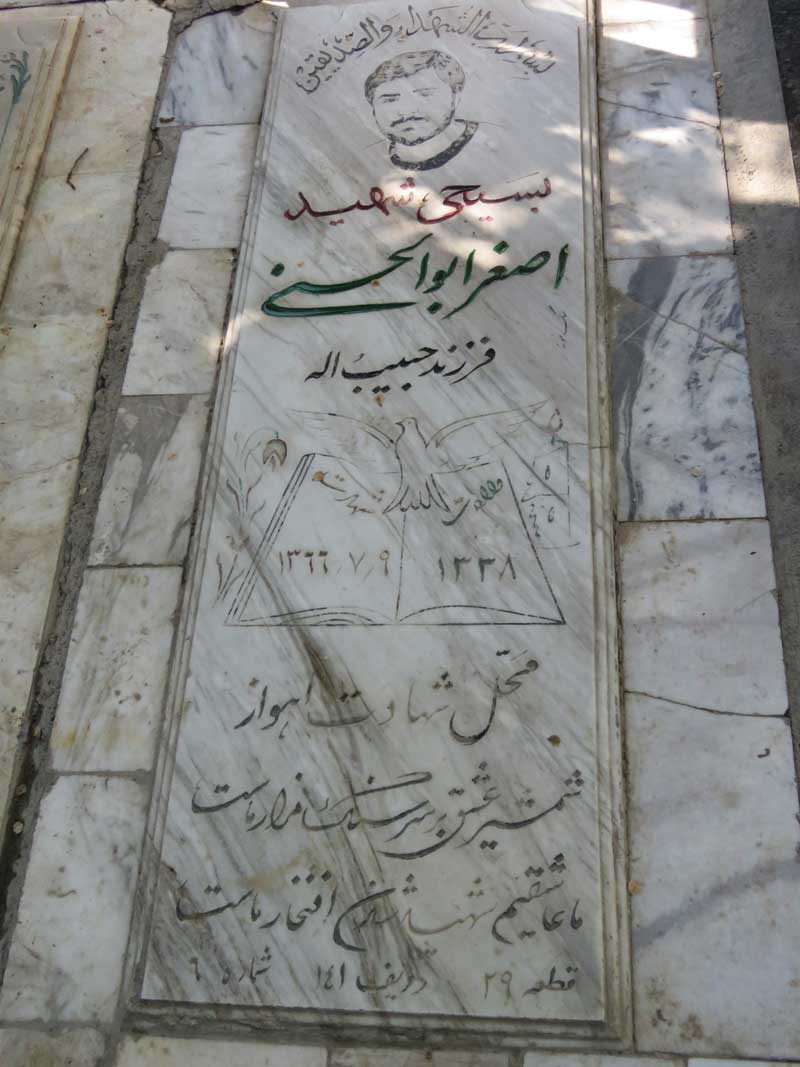 بنام رب الشهداء والصدیقین
بسیجی شهید
اصغر ابوالحسنی
فرزند حبیب اله
ولادت الله شهادت
۱۳۳۸ ۱۳۶۶/۷/۹
محل شهادت اهواز
شمشیر عشق بر سر سنگ مزار ماست
ما عاشقیم شهید شدن افتخار ماست
قطعه ۲۹ ردیف ۱۴۱ شماره ۶